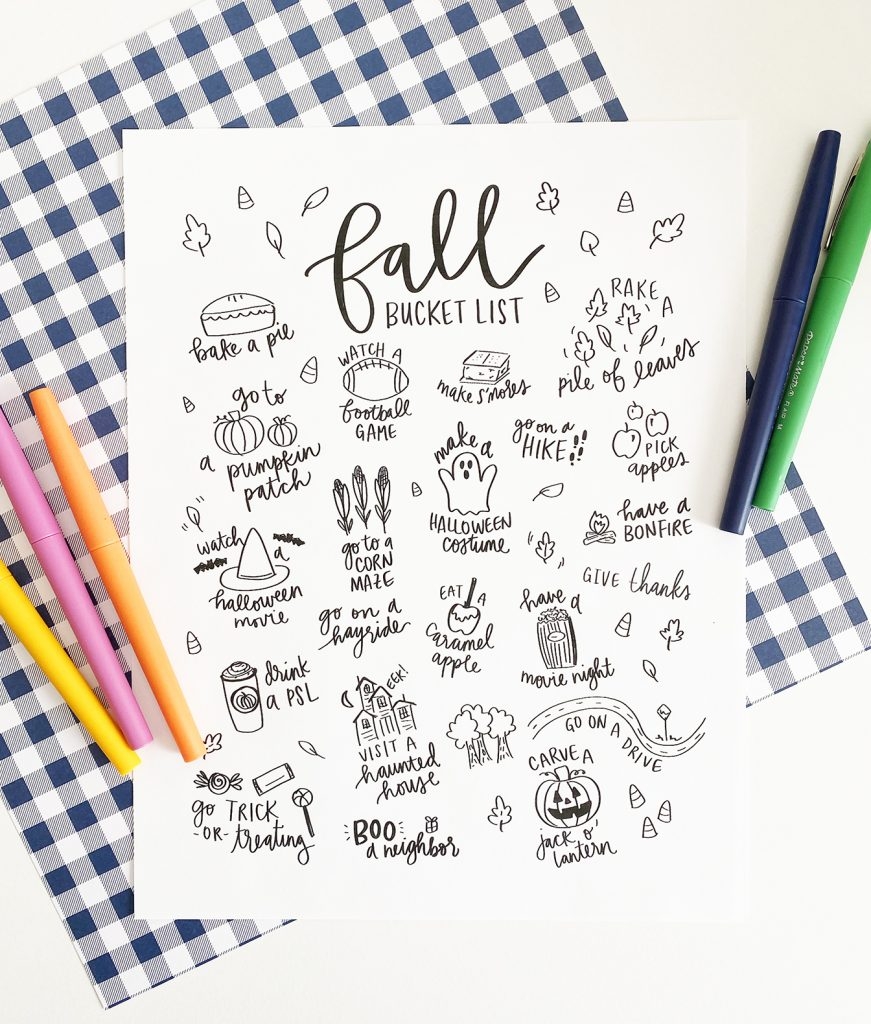 fall
BUCKET LIST
bake a pie
WATCH A
football
GAME
make s'mores
RAKE
A
pile of leaves
go to
a pumpkin
patch
make a
HALLOWEEN
costume
go on a
HIKE
PICK
apples
watch
a
halloween
movie
go to a
CORN
MAZE
have a
BONFIRE
GIVE thanks
go on a
hayride
EAT A
caramel
apple
have a
movie night
drink
a PSL
EEK!
VISIT A
haunted
house
GO ON A DRIVE
CARVE A
jack o'
lantern
go TRICK
-OR- treating
BOO
a neighbor